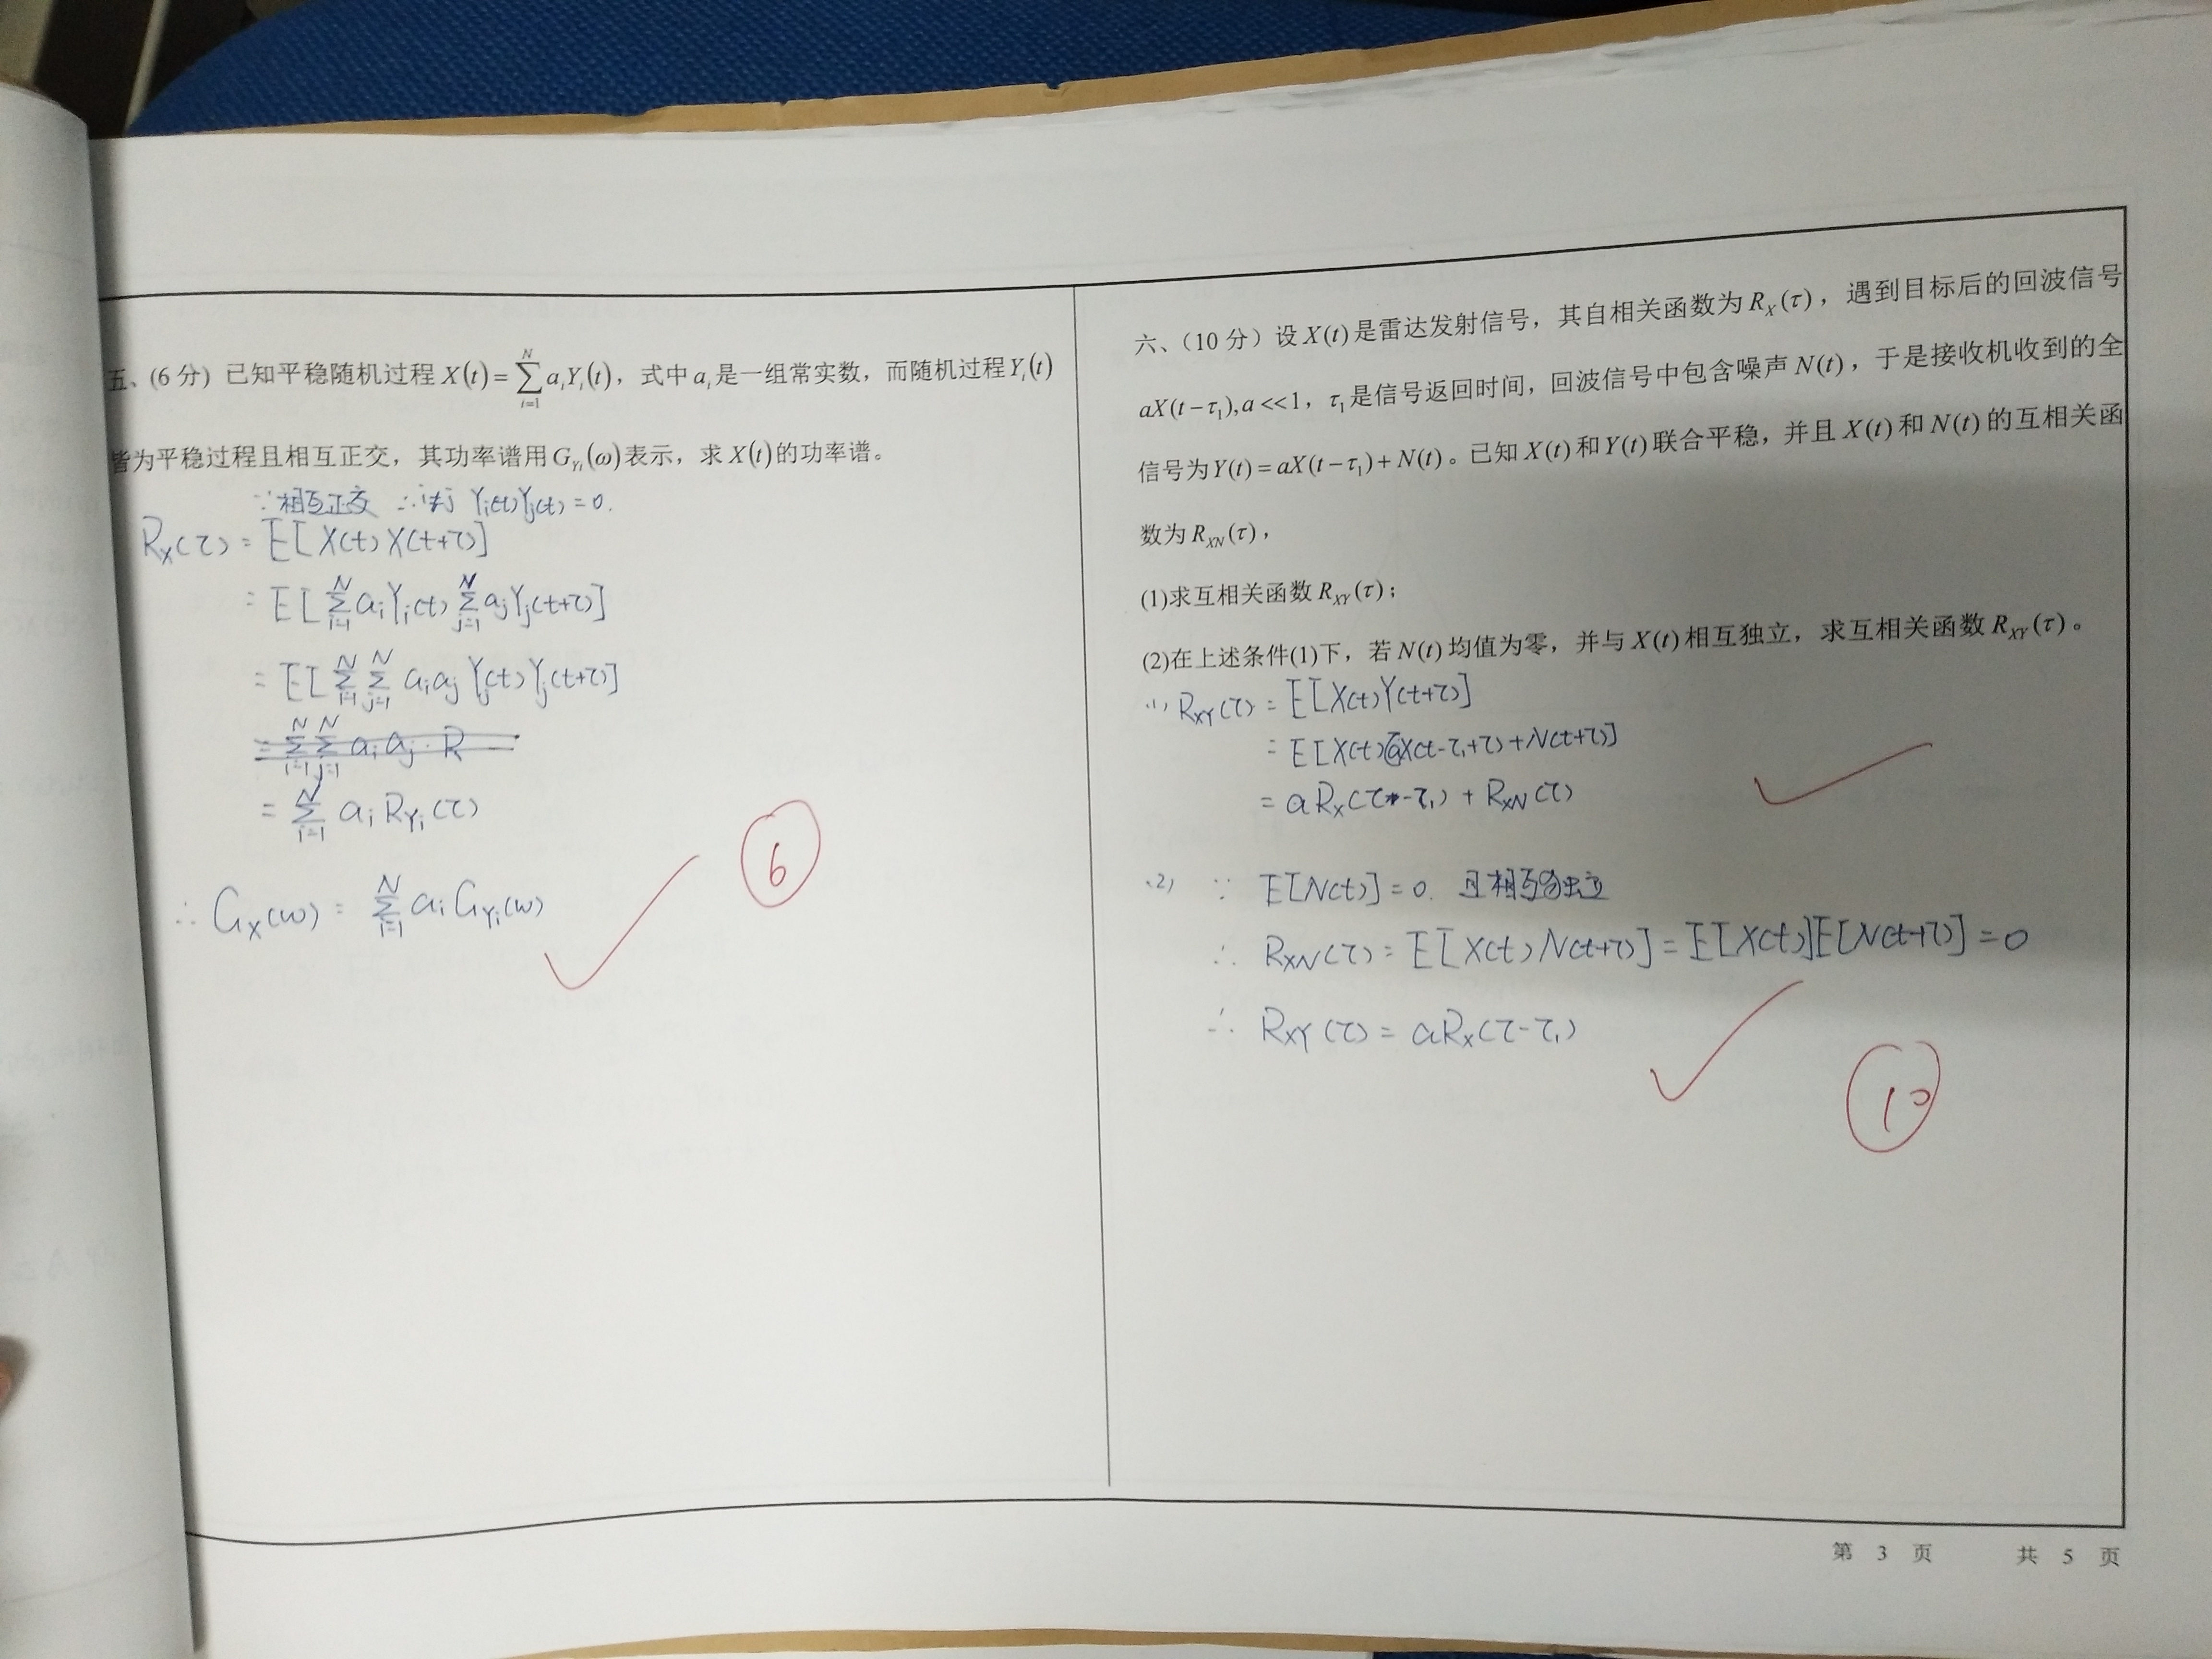 五、(6 分) 已知平稳随机过程 X(t)=∑_{i=1}^{N} a_i Y_i(t)，式中 a_i 是一组常实数，而随机过程 Y_i(t)
皆为平稳过程且相互正交，其功率谱用 G_{Yi}(ω) 表示，求 X(t) 的功率谱。
∵相互正交 ∴i≠j Y_i(t)Y_j(t)=0.
R_X(τ) = E[X(t)X(t+τ)]
= E[∑_{i=1}^{N} a_i Y_i(t) ∑_{j=1}^{N} a_j Y_j(t+τ)]
= E[∑_{i=1}^{N} ∑_{j=1}^{N} a_i a_j Y_j(t) Y_j(t+τ)]
= ∑_{i=1}^{N} ∑_{j=1}^{N} a_i a_j · R
= ∑_{i=1}^{N} a_i R_{Yi}(τ)
∴ G_X(ω) = ∑_{i=1}^{N} a_i G_{Yi}(ω)
6
六、（10 分）设 X(t) 是雷达发射信号，其自相关函数为 R_X(τ)，遇到目标后的回波信号
aX(t−τ_1), a<<1，τ_1 是信号返回时间，回波信号中包含噪声 N(t)，于是接收机收到的全
信号为 Y(t)=aX(t−τ_1)+N(t)。已知 X(t) 和 Y(t) 联合平稳，并且 X(t) 和 N(t) 的互相关函
数为 R_{XN}(τ)，
(1)求互相关函数 R_{XY}(τ)；
(2)在上述条件(1)下，若 N(t) 均值为零，并与 X(t) 相互独立，求互相关函数 R_{XY}(τ)。
(1) R_{XY}(τ) = E[X(t)Y(t+τ)]
= E[X(t)aX(t-τ_1+τ)+N(t+τ)]
= aR_X(τ-τ_1) + R_{XN}(τ)
(2) ∵ E[N(t)]=0. 且相互独立
∴ R_{XN}(τ) = E[X(t)N(t+τ)] = E[X(t)]E[N(t+τ)] = 0
∴ R_{XY}(τ) = aR_X(τ-τ_1)
10
第 3 页 共 5 页